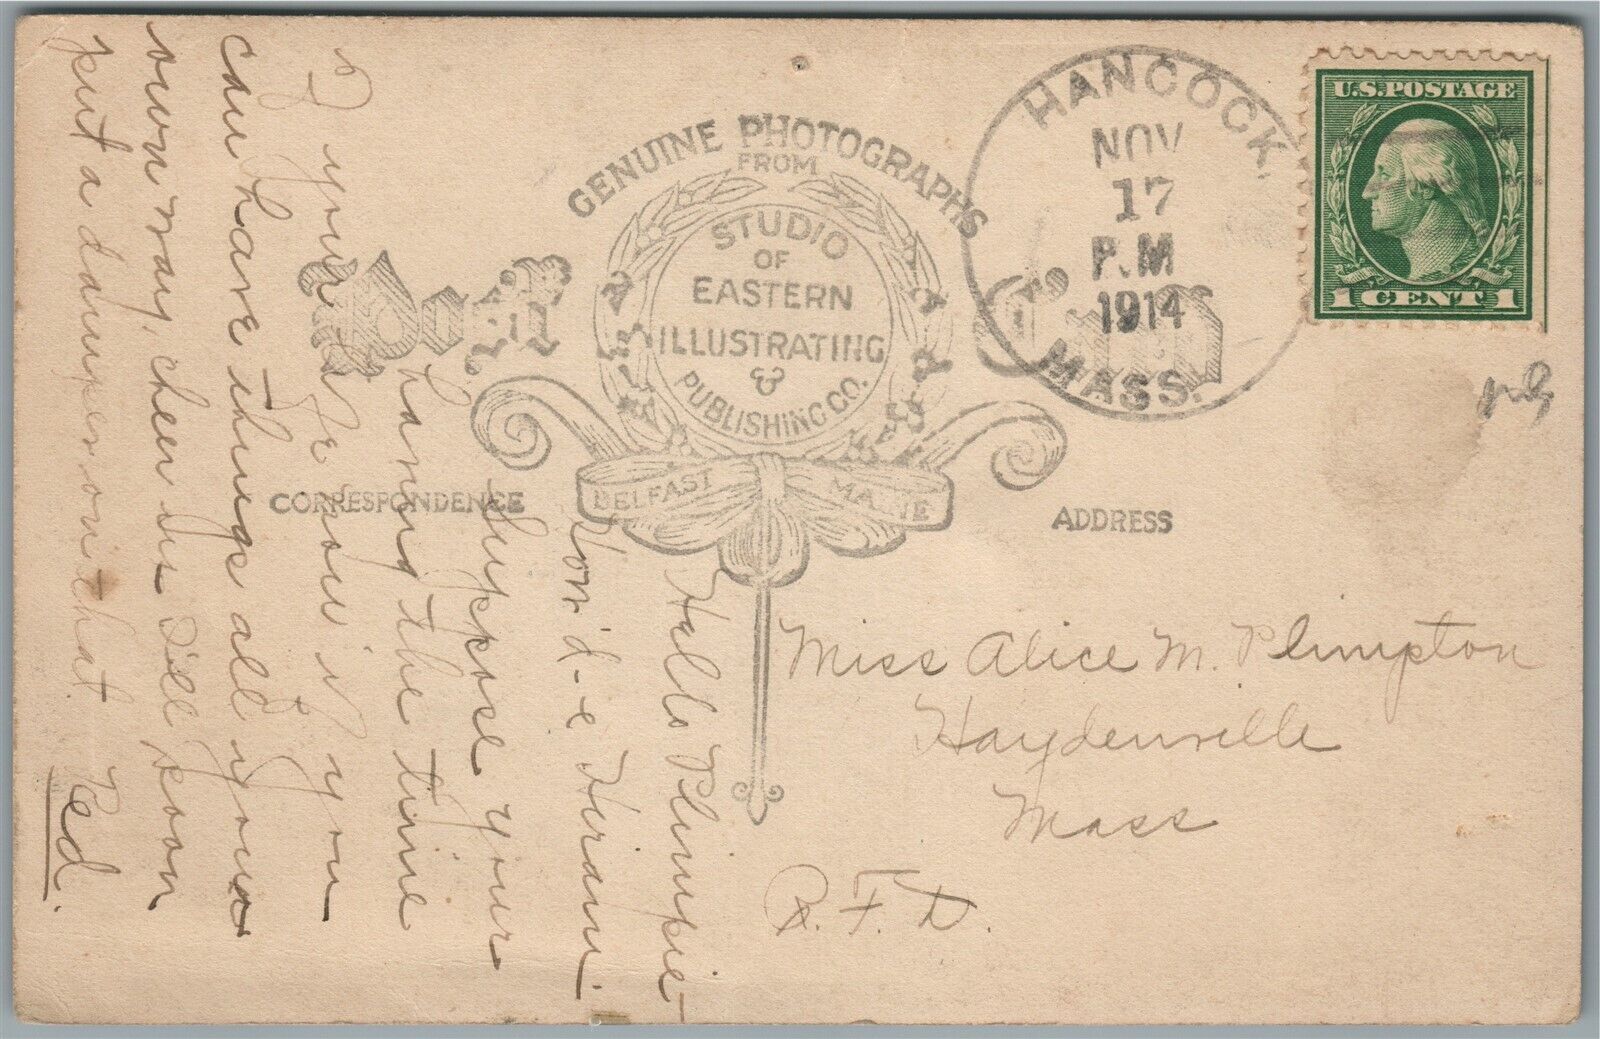 GENUINE PHOTOGRAPHS
FROM
STUDIO
OF
EASTERN
ILLUSTRATING
&
PUBLISHING CO.
BELFAST MAINE
Post Card
CORRESPONDENCE
ADDRESS
HANCOCK.
NOV
17
P.M
1914
MASS.
U.S.POSTAGE
1 CENT 1
Miss Alice M. Plimpton
Haydenville
Mass
R. F. D.
Hello Plimpie
How'd-e Hiram.
Suppose your
having the time
of your life now if you
can have things all your
own way, cheer up I'll soon
put a damper on that
Ped.